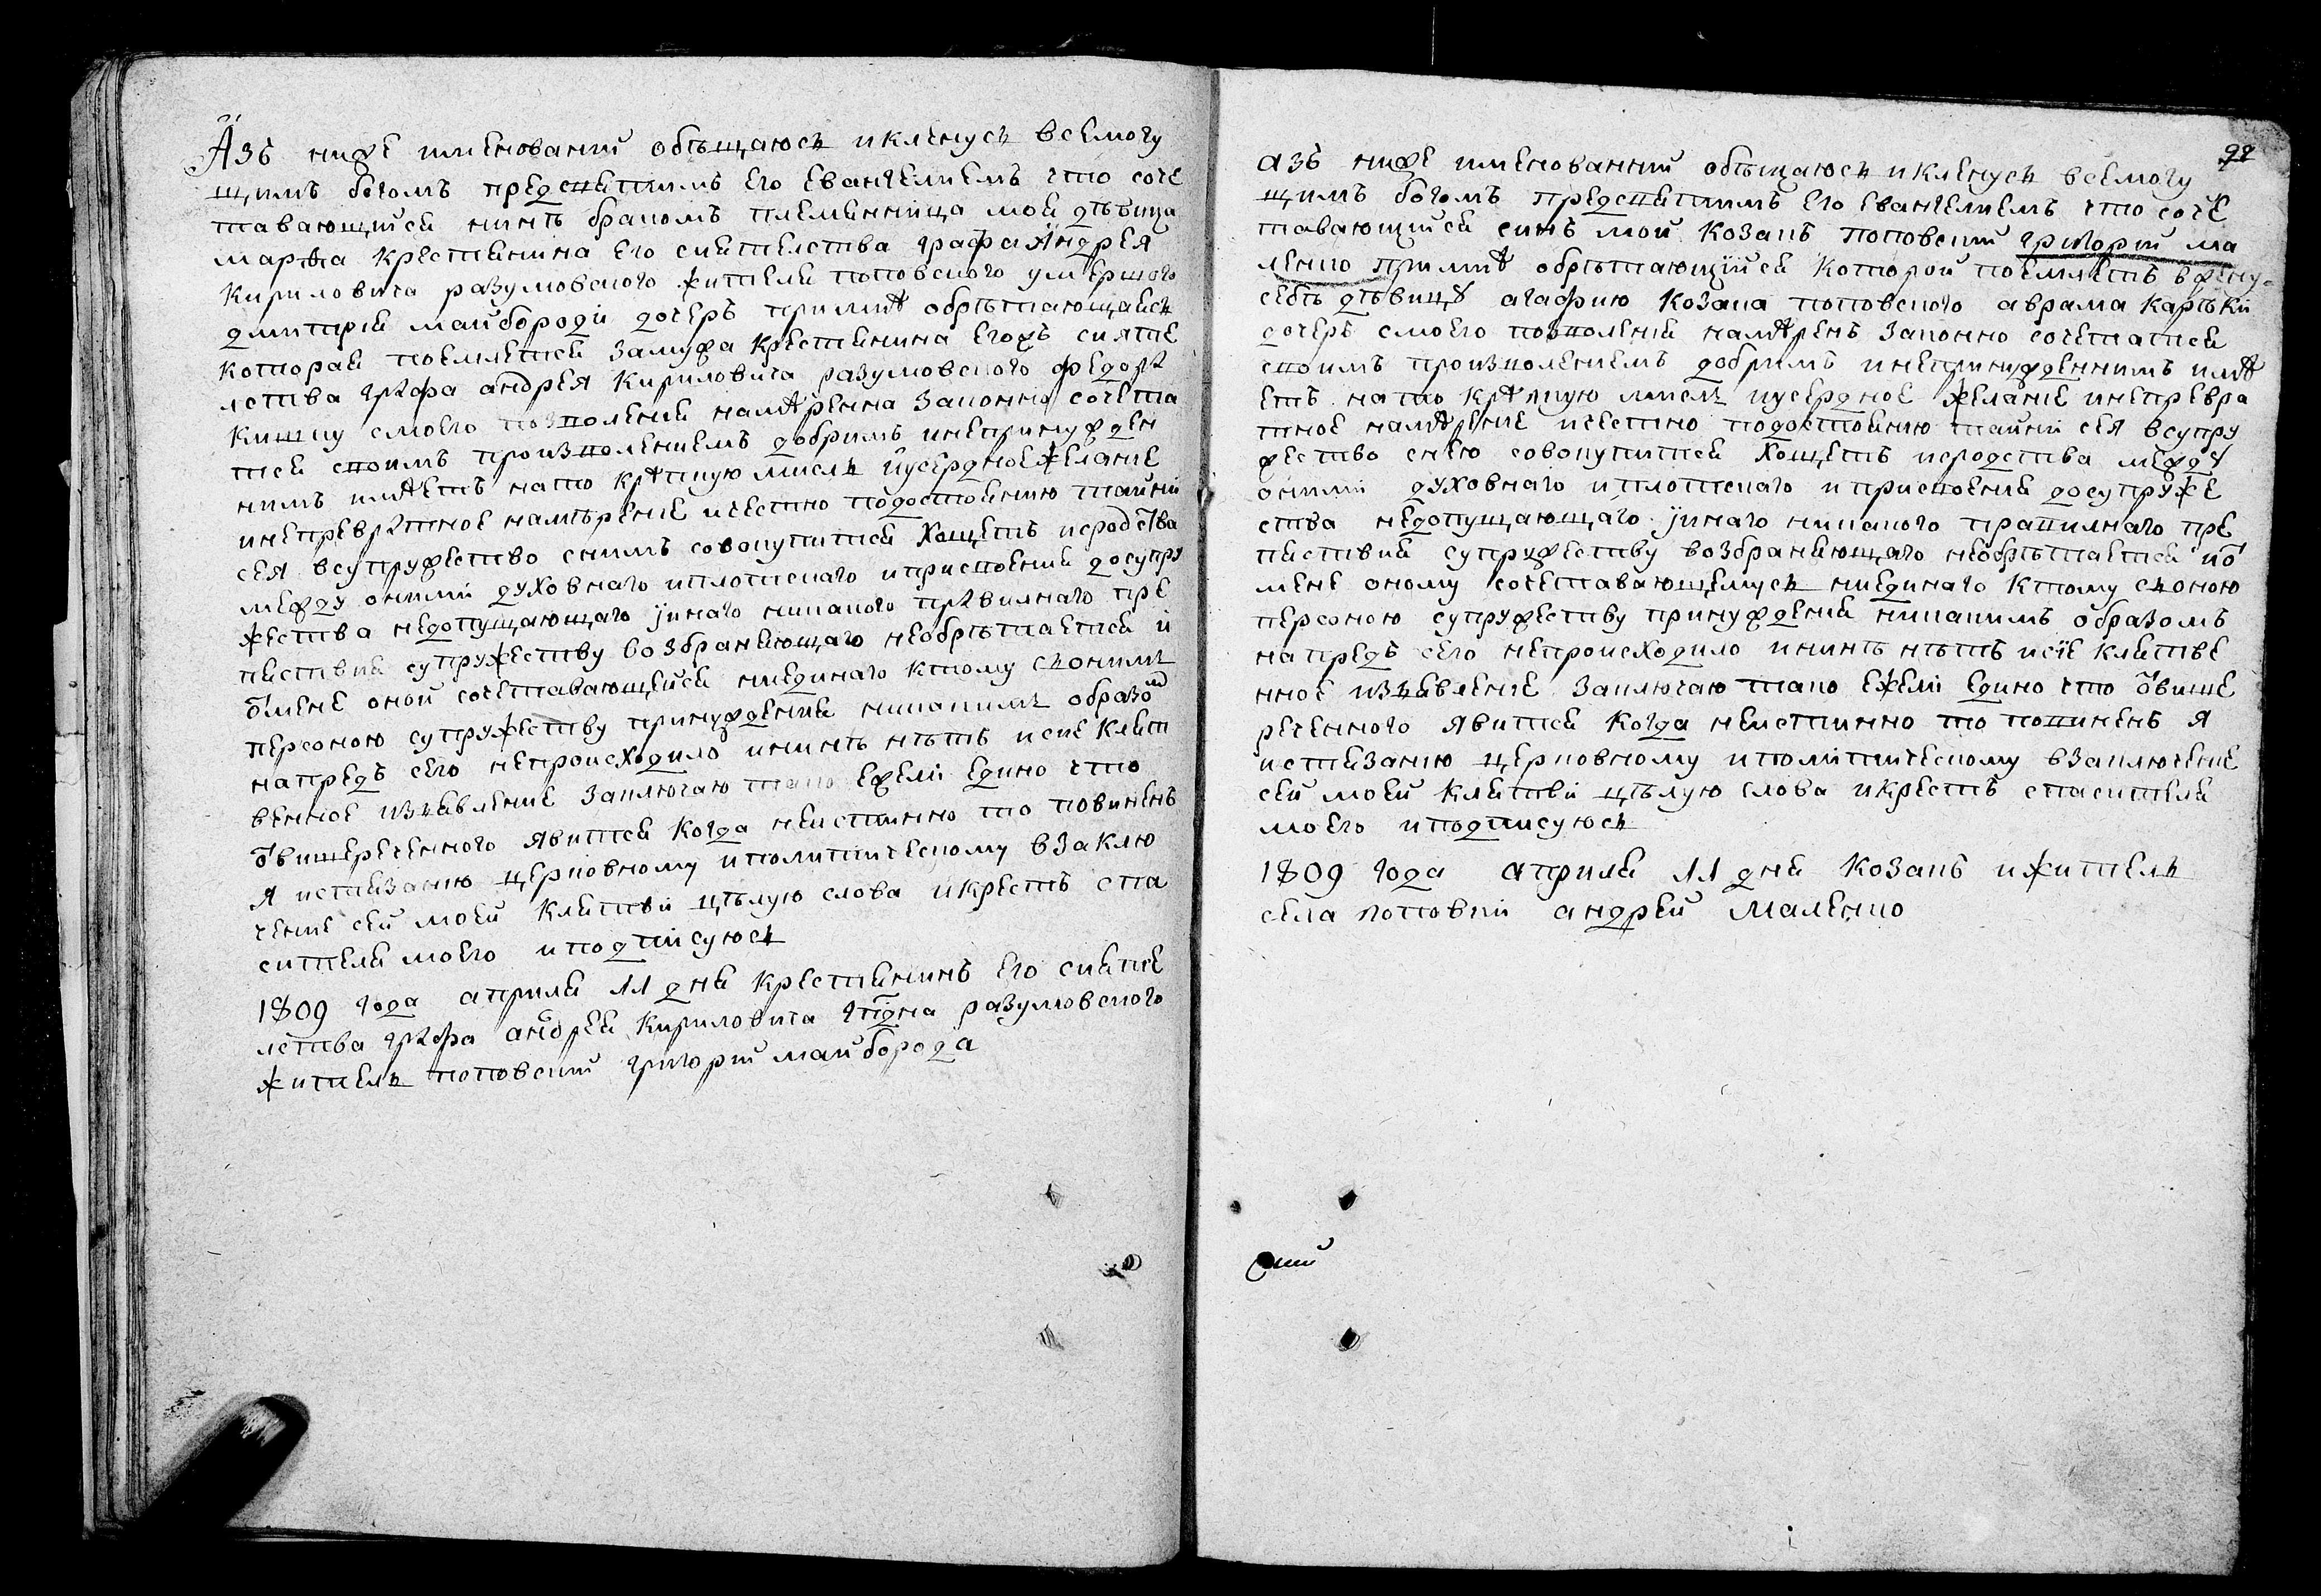 Азъ ниже именований обѣщаюсь и кленусь всемогу
щимъ богомъ пред святимъ его евангелиемъ что соче
тавающийся нинѣ бракомъ племянница моя дѣвица
марфа крестянина его сиятелства графа Андрея
Кириловича разумовского жителя поповского умершого
дмитрия майбороди дочеръ при мнѣ обрѣтающаясь
которая поемлется замужа крестянина егожъ сияте
лства графа андрея Кириловича разумовского федора
Кишку с моего позволения намѣренна законно сочета
тся своимъ произволениемъ добримъ и непринужден
нимъ имѣетъ на то крѣпкую мисль и усердное желание
и непревратное намѣрение и честно по достоянию тайни
сея в супружество снимъ совокупится хощетъ и родства
между оними духовнаго и плотскаго и присвоения до супру
жества недопущающаго и инаго никакого правилнаго пре
пятствия супружеству возбраняющаго необрѣтается и
от мене оной сочетавающейся ниединаго ктому съ онимъ
персоною супружеству принуждения никакимъ образом
напредъ сего непроисходило и нинѣ нѣтъ и сие клят
венное изъявление заключаю тако ежели едино что
от вишереченного явится когда неистинно то повиненъ
я истязанию церковному и политическому в заклю
чение сей моей клятви цѣлую слова и крестъ спа
сителя моего и подписуюсь
1809 года априля 11 дня крестянинъ его сияте
лства графа андрея Кириловича гпдна разумовского
житель поповский григорий майборода
92
азъ ниже именованний обѣщаюсь и кленусь всемогу
щимъ богомъ пред святимъ его евангелиемъ что соче
тавающийся синъ мой козакъ поповский григорий ма
ленко при мнѣ обрѣтающийся которой поемлетъ в жену
себѣ дѣвицу агафию козака поповского аврама карѣки
дочеръ с моего позволения намѣренъ законно сочетатся
своимъ произволениемъ добримъ и непринужденнимъ имѣ
етъ на то крѣпкую мислъ и усердное желание и непревра
тное намѣрение и честно по достоянию тайни сея в супру
жество снею совокупится хощетъ и родства между
оними духовнаго и плотскаго и присвоения до супруже
ства недопущающаго и инаго никакого правилнаго пре
пятствия супружеству возбраняющаго необрѣтается и от
мене оному сочетавающемусь ниединаго ктому съ оною
персоною супружеству принуждения никакимъ образомъ
напредъ сего непроисходило и нинѣ нѣтъ и сие клятве
нное изъявление заключаю тако ежели едино что от више
реченного явится когда неистинно то повиненъ я
истязанию церковному и политическому в заключение
сей моей клятви цѣлую слова и крестъ спасителя
моего и подписуюсь
1809 года априля 11 дня козакъ и житель
села поповки андрей Маленко